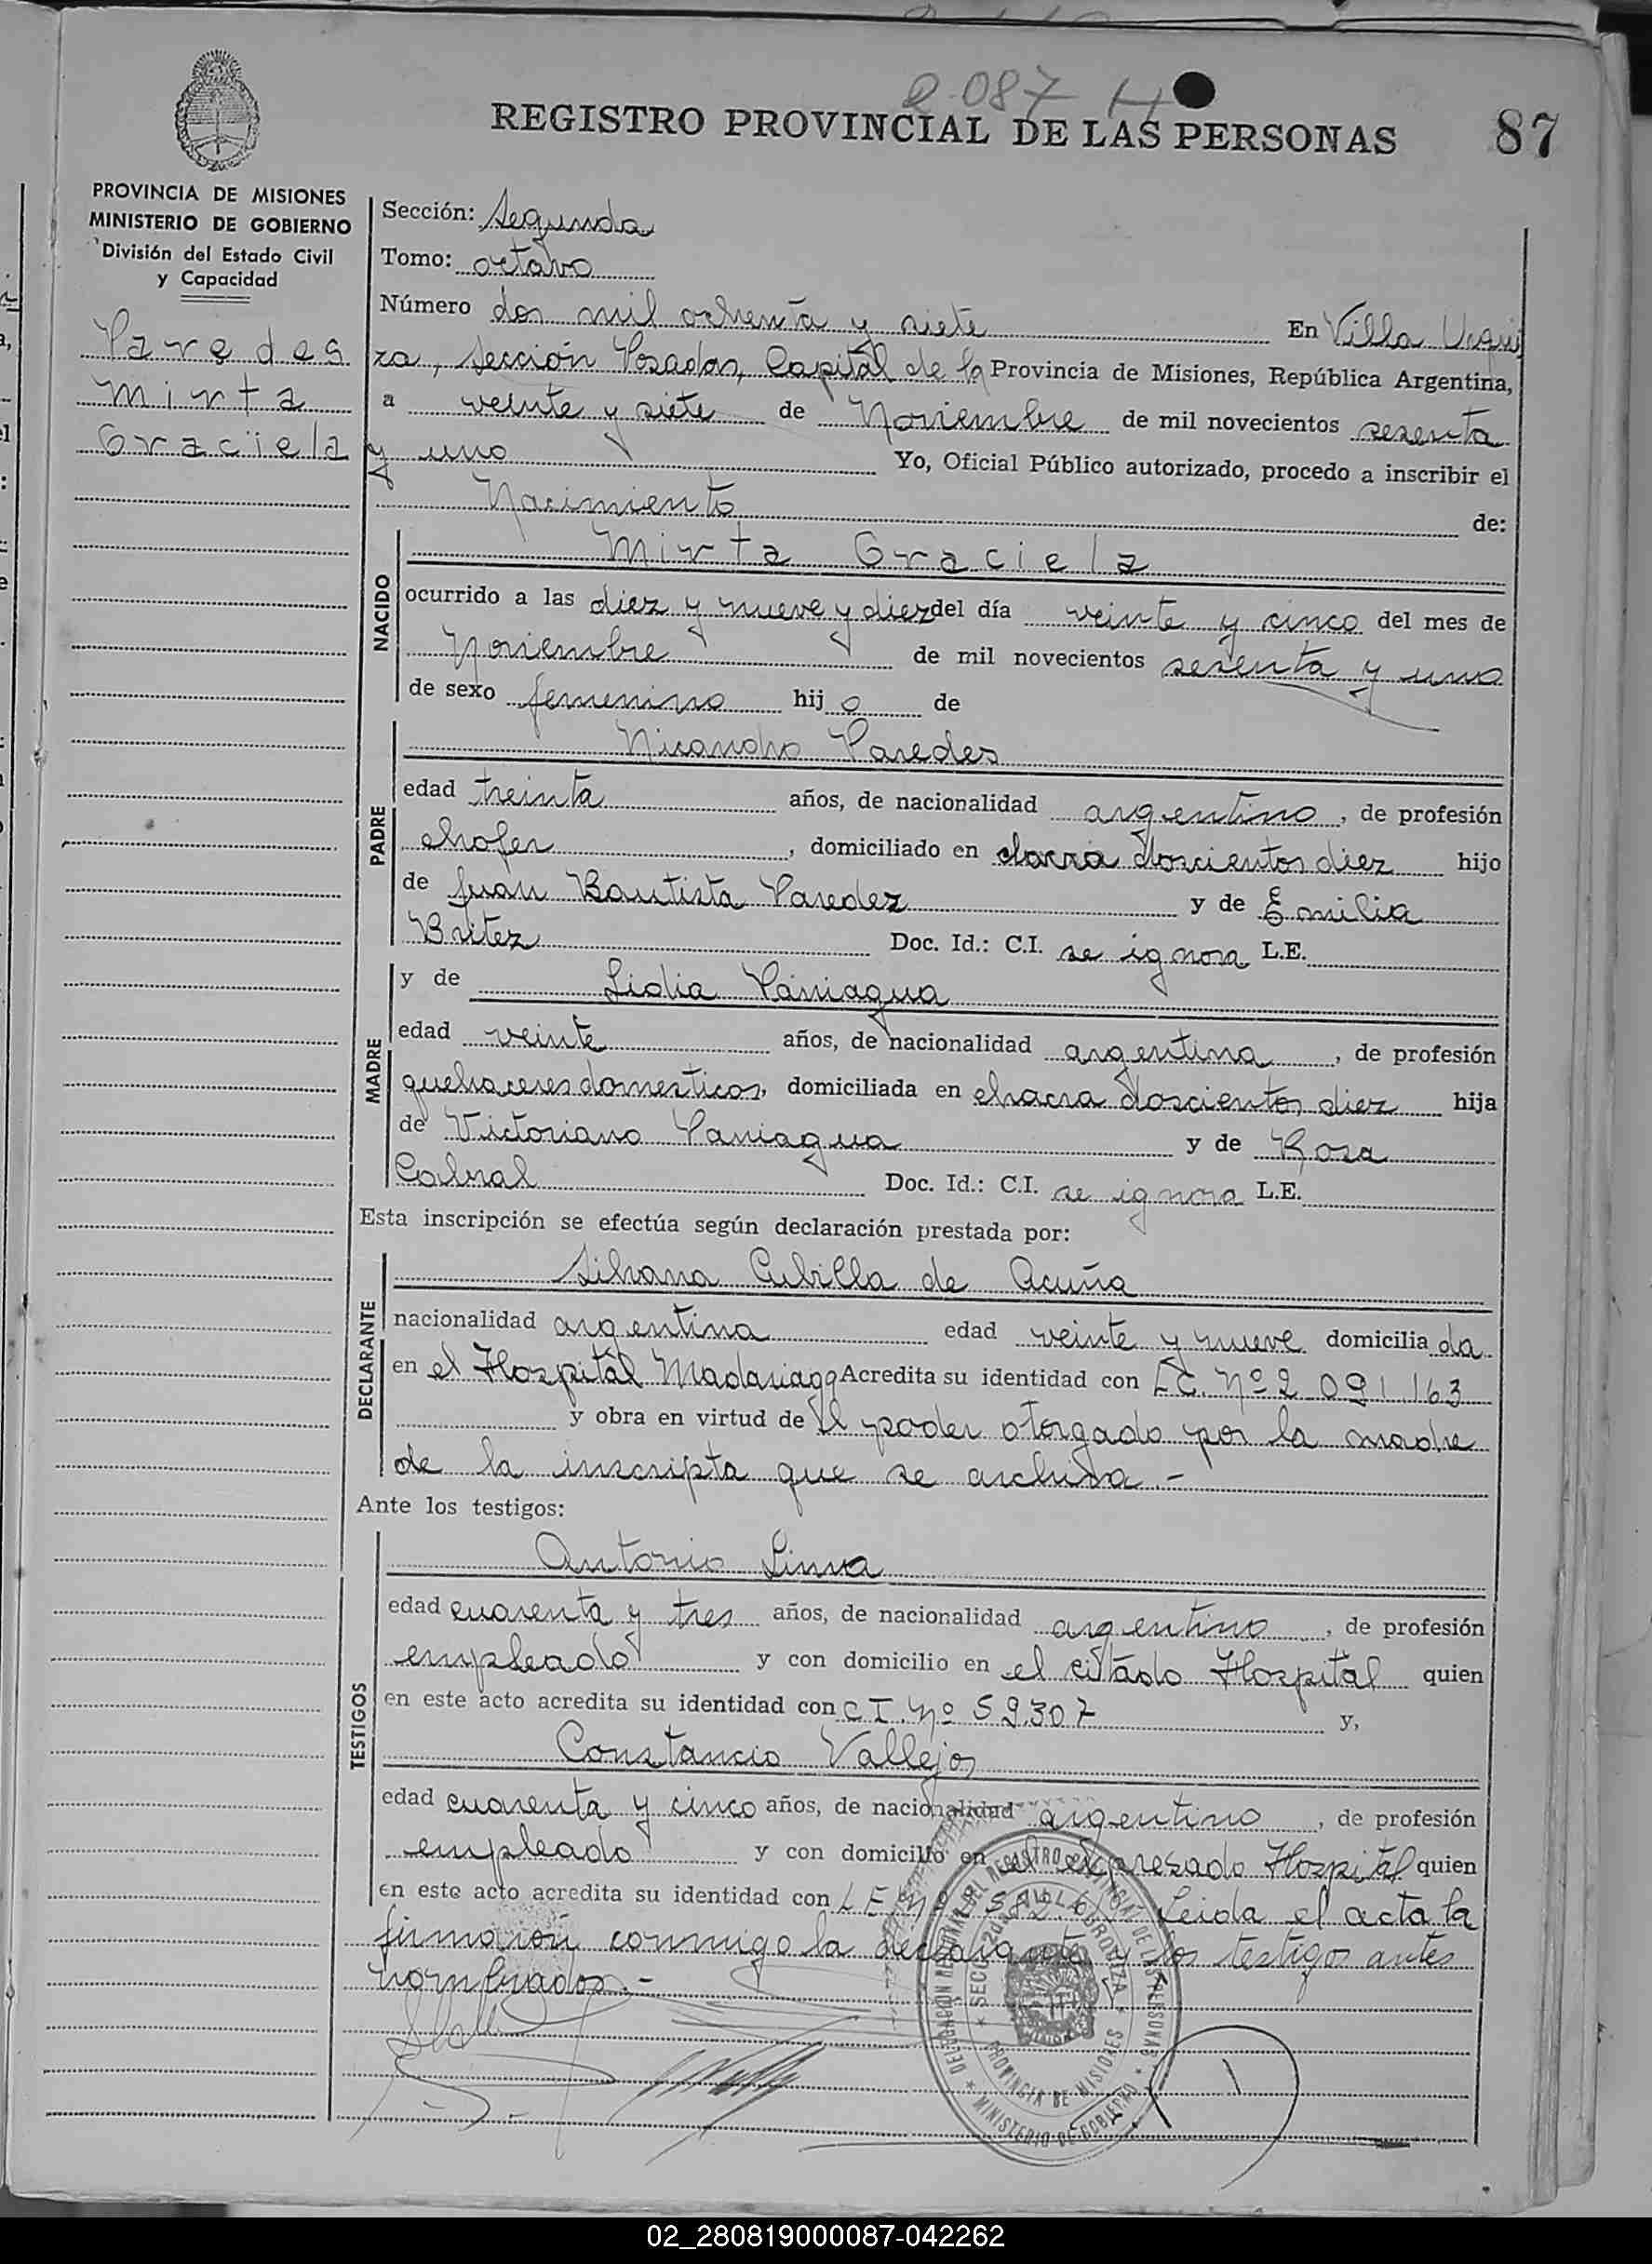 2087 H
REGISTRO PROVINCIAL DE LAS PERSONAS
87
PROVINCIA DE MISIONES
MINISTERIO DE GOBIERNO
División del Estado Civil
y Capacidad
Paredes
Mirta
Graciela
Sección: Segunda
Tomo: octavo
Número dos mil ochenta y siete En Villa Urqui
za, Sección Posadas, Capital de la Provincia de Misiones, República Argentina,
a veinte y siete de Noviembre de mil novecientos sesenta
y uno Yo, Oficial Público autorizado, procedo a inscribir el
Nacimiento de:
NACIDO
Mirta Graciela
ocurrido a las diez y nueve y diez del día veinte y cinco del mes de
Noviembre de mil novecientos sesenta y uno
de sexo femenino hij a de
PADRE
Nicandro Paredes
edad treinta años, de nacionalidad argentino, de profesión
chofer, domiciliado en chacra doscientos diez hijo
de Juan Bautista Paredez y de Emilia
Britez Doc. Id.: C.I. se ignora L.E.
MADRE
y de Lidia Paniagua
edad veinte años, de nacionalidad argentina, de profesión
quehaceres domesticos, domiciliada en chacra doscientos diez hija
de Victoriano Paniagua y de Rosa
Cabral Doc. Id.: C.I. se ignora L.E.
Esta inscripción se efectúa según declaración prestada por:
DECLARANTE
Silvana Cubilla de Acuña
nacionalidad argentina edad veinte y nueve domicilia da
en el Hospital Madariaga Acredita su identidad con L.C. Nº 2 091 163
y obra en virtud de el poder otorgado por la madre
de la inscripta que se archiva.-
Ante los testigos:
TESTIGOS
Antonio Lima
edad cuarenta y tres años, de nacionalidad argentino, de profesión
empleado y con domicilio en el citado Hospital quien
en este acto acredita su identidad con C I. Nº 59.307 y,
Constancio Vallejos
edad cuarenta y cinco años, de nacionalidad argentino, de profesión
empleado y con domicilio en el expresado Hospital quien
en este acto acredita su identidad con L E Nº Leida el acta la
firmarón conmigo la declarante y los testigos antes
nombrados.-
DELEGACIÓN REGIONAL DEL REGISTRO PROVINCIAL DE LAS PERSONAS
MINISTERIO DE GOBIERNO
SECC. 2da. VILLA URQUIZA
PROVINCIA DE MISIONES
02_280819000087-042262